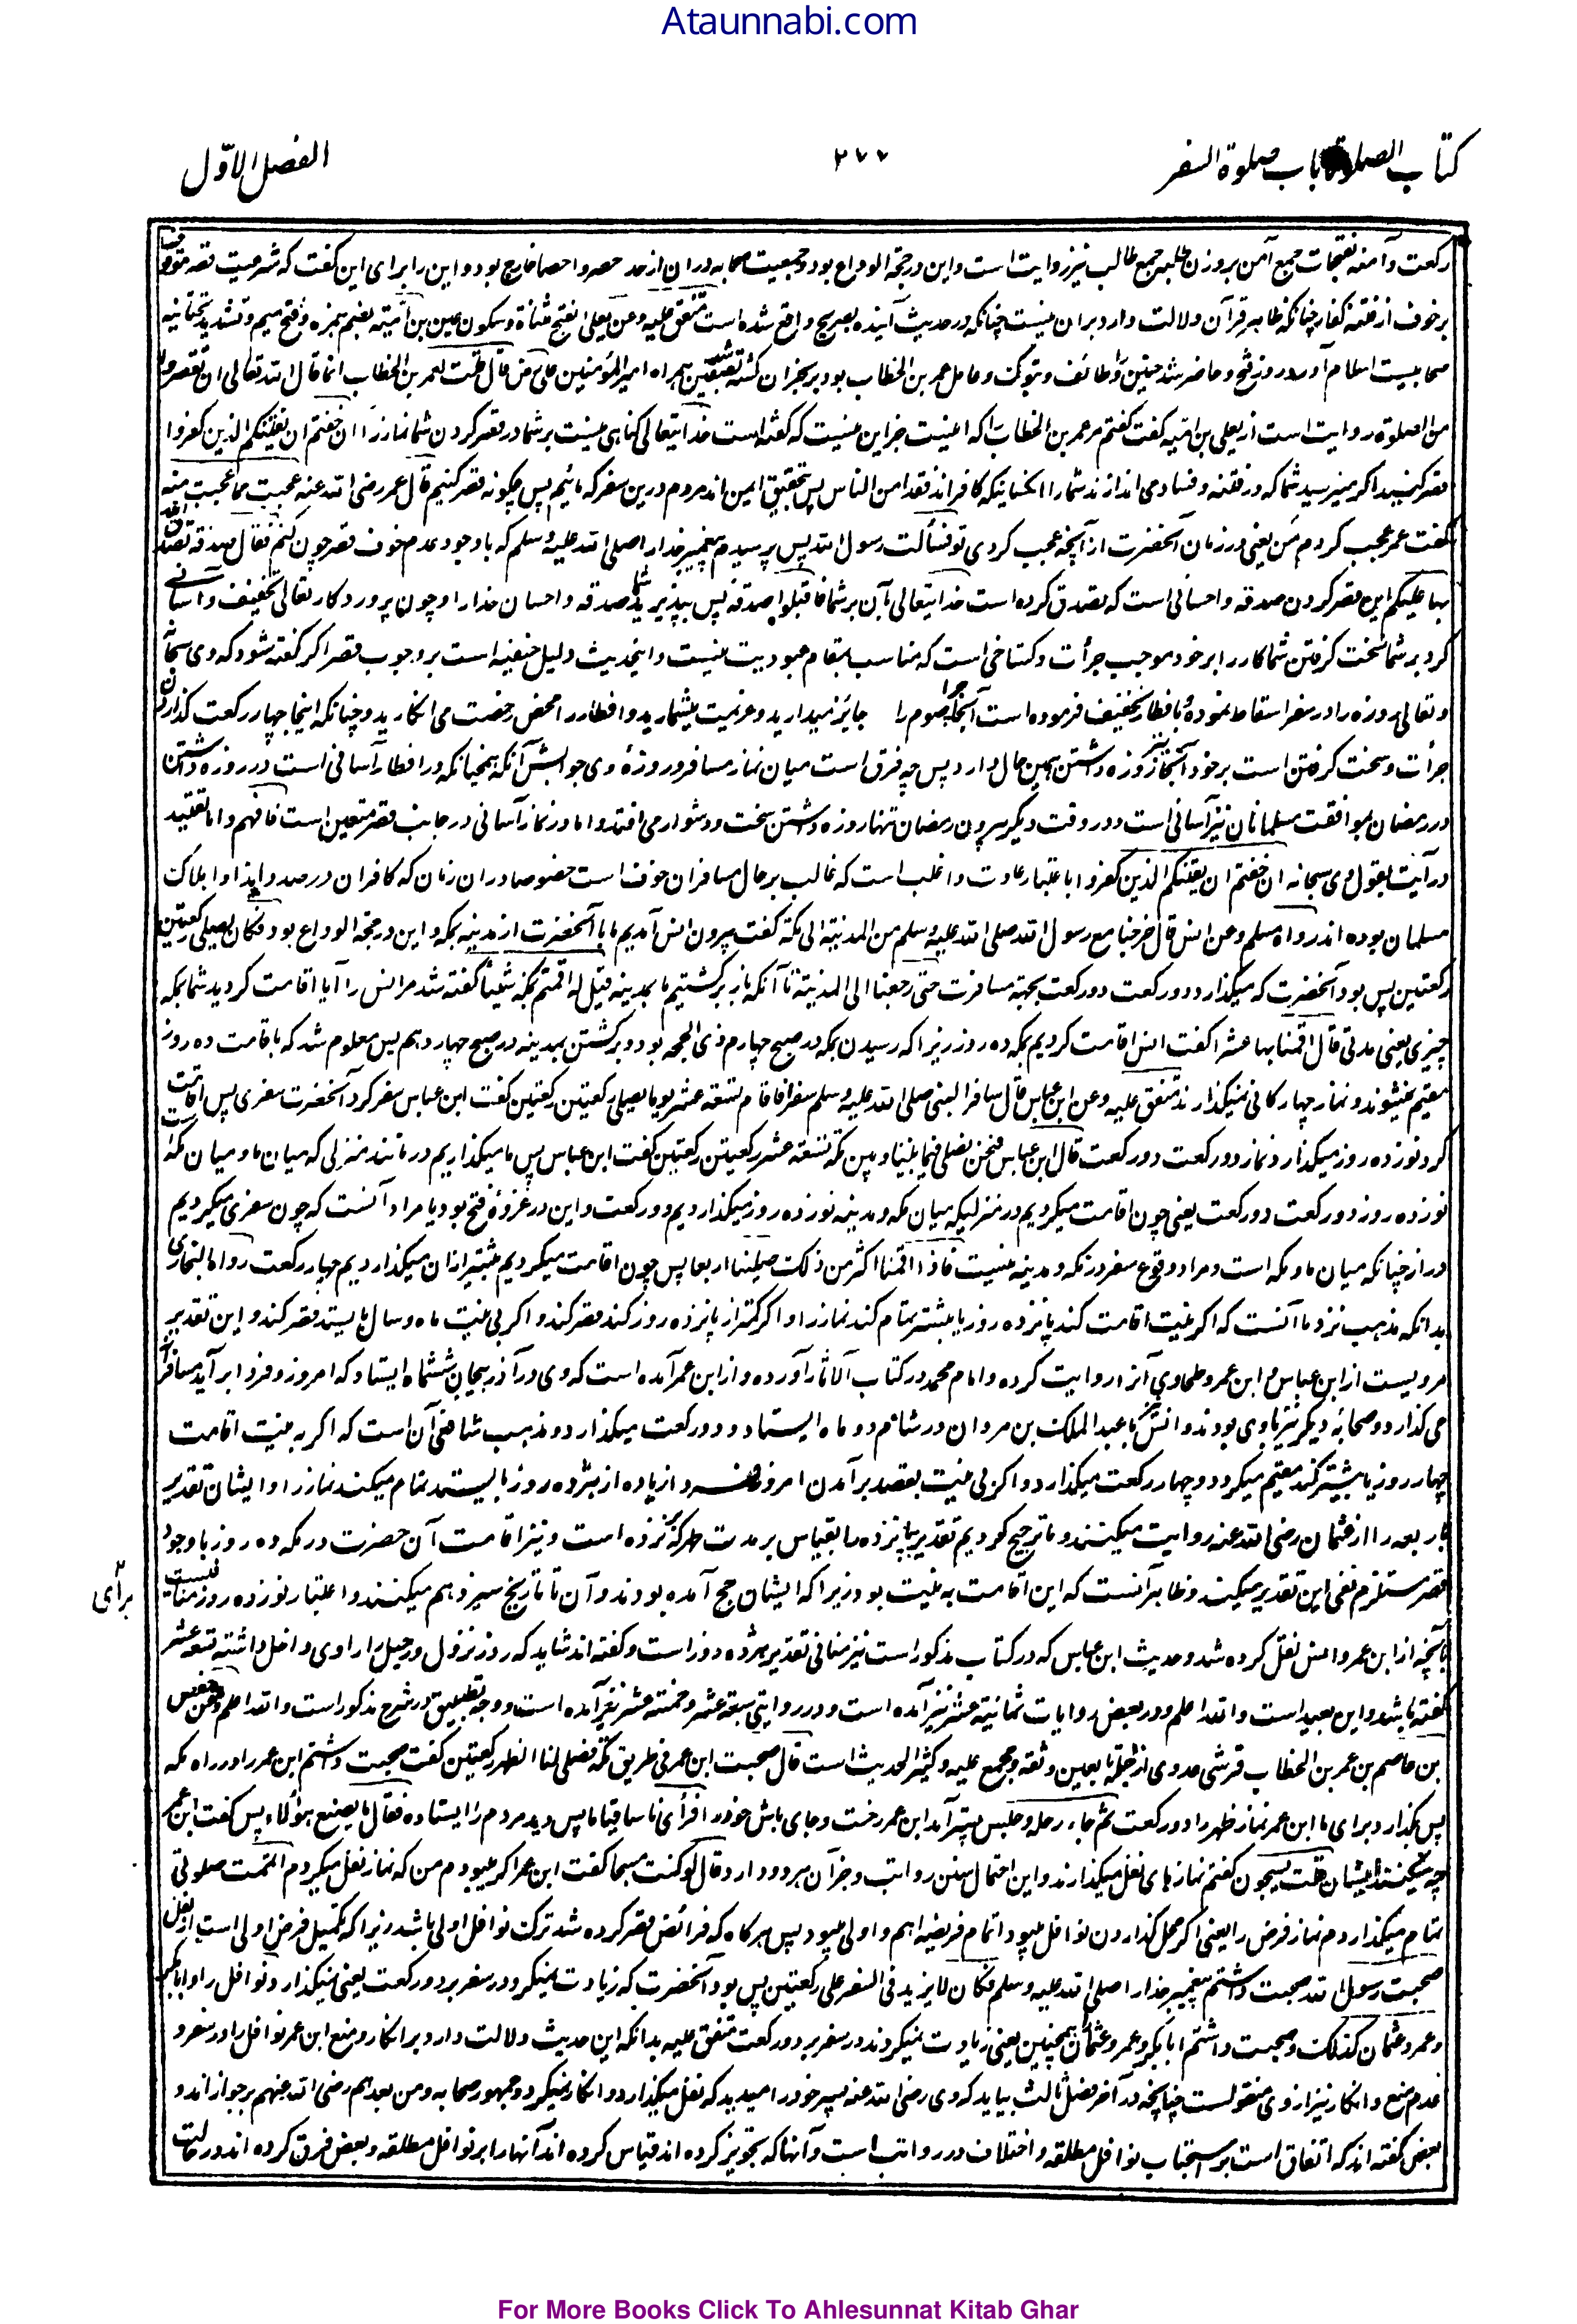 Ataunnabi.com
کتاب الصلوة باب صلوة السفر
۲۷۷
الفصل الاوّل
رکعت و آمنه بفتحات جمع آمن بروزن طلبه جمع طالب نیز روایت است و این در حجة الوداع بود و جمعیت صحابه در ان از حد حصر و احصا خارج بود و این را برای این گفت که شرعیت قصر موقوف
بر خوف از فتنه کفار چنانکه ظاهر قرآن دلالت دارد بران نیست چنانکه در حدیث آینده بصریح واقع شده است متفق علیه وعن یعلی بفتح مثناة و سکون عین بن امیة بضم همزه و فتح میم و تشدید تحتانیه
صحابیست اسلام آورد روز فتح و حاضر شد حنین و طائف و تبوک و عامل عمر بن الخطاب بود بر نجران کشته شد بصفین همراه امیر المؤمنین علی رض قال قلت لعمر بن الخطاب انما قال الله تعالی ان تقصروا
من الصلوة روایت است از یعلی بن امیه گفت گفتم مر عمر بن الخطاب را که اینست جز این نیست که گفته است خدایتعالی گناهی نیست بر شما در قصر کردن شما نماز را ان خفتم ان یفتنکم الذین کفروا
قصر کنید اگر میترسید شما که در فتنه و فساد می اندازند شما را کسانیکه کافر اند فقد امن الناس پس بتحقیق ایمن اند مردم درین سفر که مائیم پس چگونه قصر کنیم قال عمر رضی الله عنه عجبت مما عجبت منه
گفت عمر عجب کردم من یعنی در زمان آنحضرت از آنچه عجب کردی تو فسألت رسول الله پس پرسیدم پیغمبر خدا را صلی الله علیه وسلم که با وجود عدم خوف قصر چون کنم فقال صدقة تصدق الله
بها علیکم این قصر کردن صدقه و احسانی است که تصدق کرده است خدایتعالی بآن بر شما فاقبلوا صدقته پس بپذیرید شما صدقه و احسان خدا را و چون پروردگار تعالی تخفیف و آسانی
کرد بر شما سخت گرفتن شما کار را بر خود موجب جرأت و گستاخی است که مناسب بمقام عبودیت نیست و اینحدیث دلیل حنفیه است بر وجوب قصر اگر گفته شود که وی سبحانه
و تعالی روزه را در سفر اسقاط نموده بافطار تخفیف فرموده است آنجا چرا صوم را جایز میدارید و عزیمت میشمارید و افطار را محض رخصت می انگارید و چنانکه اینجا چهار رکعت گذاردن
جرأت و سخت گرفتن است بر خود آنجا نیز روزه داشتن همین حال دارد پس چه فرق است میان نماز مسافر و روزهٔ وی جوابش آنکه همچنانکه در افطار آسانی است در روزه داشتن
در رمضان بموافقت مسلمانان نیز آسانی است و در وقت دیگر بیرون رمضان تنها روزه داشتن سخت و دشوار می افتد و اما در نماز آسانی در جانب قصر متعین است فافهم و اما تقیید
در آیت بقول وی سبحانه ان خفتم ان یفتنکم الذین کفروا باعتبار عادت و اغلب است که غالب بر حال مسافران خوف است خصوصا در ان زمان که کافران در صدد ایذا و اهلاک
مسلمانان بوده اند رواه مسلم وعن انس قال خرجنا مع رسول الله صلی الله علیه وسلم من المدینة الی مکة گفت بیرون آمدیم ما با آنحضرت از مدینه بمکه و این در حجة الوداع بود فکان یصلی رکعتین
رکعتین پس بود آنحضرت که میگذارد دو رکعت دو رکعت بجهة مسافرت حتی رجعنا الی المدینة تا آنکه باز برگشتیم ما بمدینه قیل له اقمتم بمکة شیئا گفته شد مر انس را آیا اقامت کردید شما بمکه
چیزی یعنی مدتی قال اقمنا بها عشرا گفت انس اقامت کردیم بمکه ده روز زیرا که رسیدن بمکه در صبح چهارم ذی الحجه بود و برگشتن بمدینه در صبح چهاردهم پس معلوم شد که باقامت ده روز
مقیم نمیشوند و نماز چهارگانی نمیگذارند متفق علیه وعن ابن عباس قال سافر النبی صلی الله علیه وسلم سفرا فاقام تسعة عشر یوما یصلی رکعتین رکعتین گفت ابن عباس سفر کرد آنحضرت سفری پس اقامت
کرد نوزده روز میگذارد نماز دو رکعت دو رکعت قال ابن عباس فنحن نصلی فیما بیننا وبین مکة تسعة عشر رکعتین رکعتین گفت ابن عباس پس ما میگذاریم در مانند منزلی که میان ما و میان مکه است
نوزده روز دو رکعت دو رکعت یعنی چون اقامت میکردیم در منزلیکه میان مکه و مدینه نوزده روز میگذاردیم دو رکعت و این در غزوهٔ فتح بود یا مراد آنست که چون سفری میکردیم
دراز چنانکه میان ما و مکه است و مراد وقوع سفر در مکه و مدینه نیست فاذا اقمنا اکثر من ذلک صلینا اربعا پس چون اقامت میکردیم بیشتر ازان میگذاردیم چهار رکعت رواه البخاری
بدانکه مذهب نزد ما آنست که اگر نیت اقامت کند پانزده روز یا بیشتر تمام کند نماز را و اگر کمتر از پانزده روز کند قصر کند و اگر بی نیت ماه و سال بایستد قصر کند و این تقدیر
مرویست از ابن عباس و ابن عمر و طحاوی آنرا روایت کرده و امام محمد در کتاب الآثار آورده و از ابن عمر آمده است که وی در آذربیجان ششماه ایستاد که امروز و فردا بر آید مسافرانه
می گذارد و صحابه دیگر نیز با وی بودند و انس با عبد الملک بن مروان در شام دو ماه ایستاد و دو رکعت میگذارد و مذهب شافعی آن است که اگر به نیت اقامت
چهار روز یا بیشتر کند مقیم میگردد و چهار رکعت میگذارد و اگر بی نیت بقصد بر آمدن امروز و فردا زیاده از هژده روز بایستد تمام میکند نماز را و ایشان تقدیر
باربعه را از عثمان رضی الله عنه روایت میکنند و ما ترجیح کردیم تقدیر بپانزده را بقیاس بر مدت طهر که پانزده است و نیز اقامت آن حضرت در مکه ده روز با وجود
قصر مستلزم نفی این تقدیر میکند و ظاهر آنست که این اقامت به نیت بود زیرا که ایشان حج آمده بودند و آن تا تاریخ سیزدهم میکنند و اعتبار نوزده روز منافیست
برای
بآنچه از ابن عمر و انس نقل کرده شد و حدیث ابن عباس که در کتاب مذکور است نیز منافی تقدیر هژده روز است و گفته اند شاید که روز نزول و رحیل را راوی داخل داشته تسعة عشر
گفته باشد و این بعید است والله اعلم و در بعض روایات ثمانیة عشر نیز آمده است و در روایتی سبعة عشر و خمسة عشر نیز آمده است و وجه تطبیق در شرح مذکور است والله اعلم وعن حفص
بن عاصم بن عمر بن الخطاب قرشی عدوی از اجلهٔ تابعین و ثقه و مجمع علیه و کثیر الحدیث است قال صحبت ابن عمر فی طریق مکة فصلی لنا الظهر رکعتین گفت صحبت داشتم ابن عمر را در راه مکه
پس بگذارد برای ما ابن عمر نماز ظهر را دو رکعت ثم جاء رحله وجلس پستر آمد ابن عمر رخت و جای باش خود را فرأی ناسا قیاما پس دید مردم را ایستاده فقال ما یصنع هؤلاء پس گفت ابن عمر
چه میکنند ایشان قلت یسبحون گفتم نمازهای نفل میگذارند و این احتمال سنن رواتب و جز آن هر دو دارد قال لو کنت مسبحا گفت ابن عمر اگر میبودم من که نماز نفل میکردم اتممت صلوتی
تمام میگذاردم نماز فرض را یعنی اگر محل گذاردن نوافل میبود اتمام فریضه اهم و اولی میبود پس هرگاه که فرائض قصر کرده شد ترک نوافل اولی باشد زیرا که تکمیل فرض اولی است از نفل
صحبت رسول الله صحبت داشتم پیغمبر خدا را صلی الله علیه وسلم فکان لا یزید فی السفر علی رکعتین پس بود آنحضرت که زیادت نمیکرد در سفر بر دو رکعت یعنی نمیگذارد نوافل را وابا بکر
وعمر وعثمان کذلک و صحبت داشتم ابابکر و عمر و عثمان همچنین یعنی زیادت نمیکردند در سفر بر دو رکعت متفق علیه بدانکه این حدیث دلالت دارد بر انکار و منع ابن عمر نوافل را در سفر و
عدم منع و انکار نیز از وی منقولست چنانچه در آخر فصل ثالث بیاید که وی رضی الله عنه پسر خود را میدید که نفل میگذارد و انکار نمیکرد و جمهور صحابه و من بعدهم رضی الله عنهم بر جواز اند و
بعض گفته اند که اتفاق است بر استحباب نوافل مطلقه و اختلاف در رواتب است و آنها که تجویز کرده اند قیاس کرده اند آنها را بر نوافل مطلقه و بعض فرق کرده اند در حالت
For More Books Click To Ahlesunnat Kitab Ghar